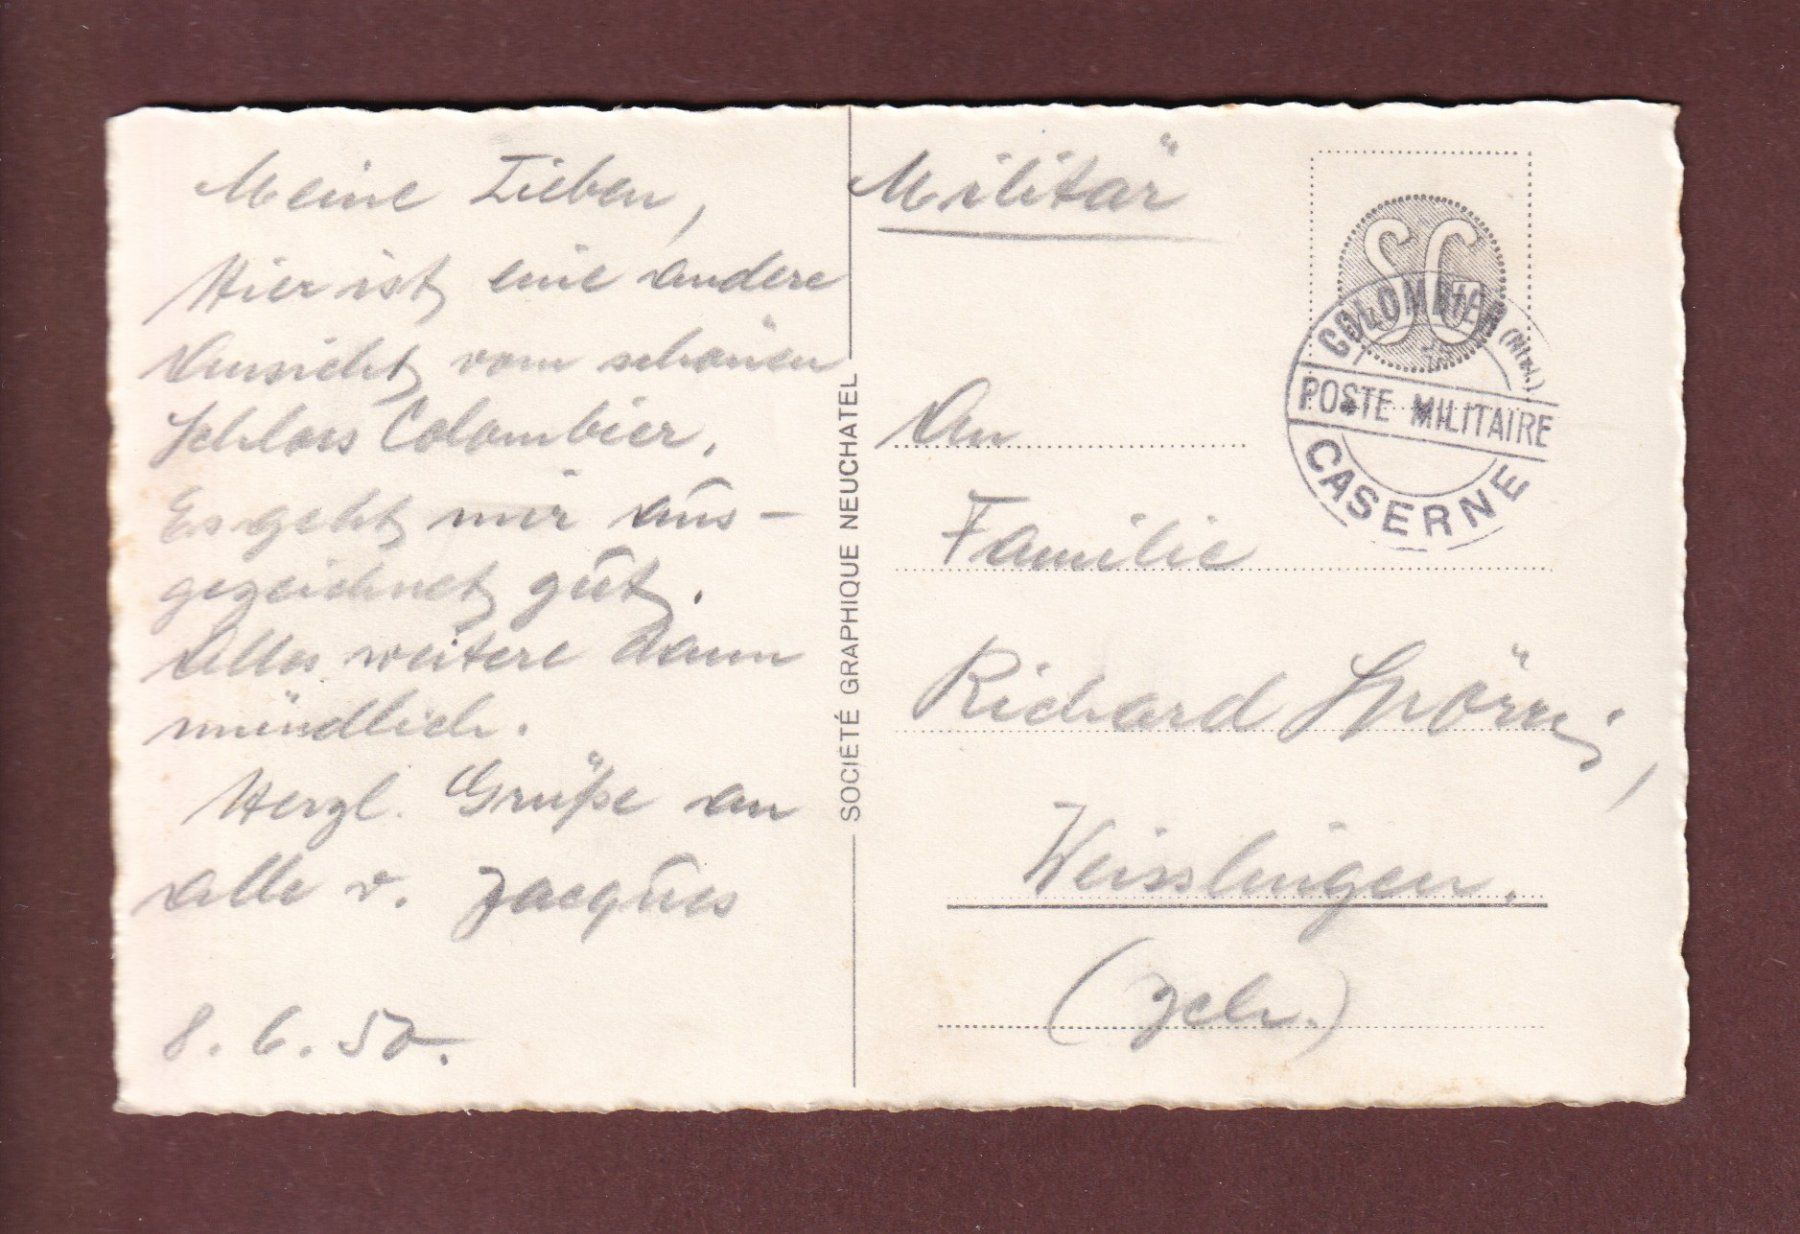 Meine Lieben,
Hier ist eine andere
Ansicht vom schönen
Schloss Colombier.
Es geht mir aus-
gezeichnet gut.
Alles weitere dann
mündlich.
Herzl. Grüße an
alle v. Jacques
8. 6. 50.
SOCIÉTÉ GRAPHIQUE NEUCHATEL
Militär
SG
COLOMBIER (Ntel.)
POSTE MILITAIRE
CASERNE
An
Familie
Richard Spörri,
Weisslingen.
(Zch.)